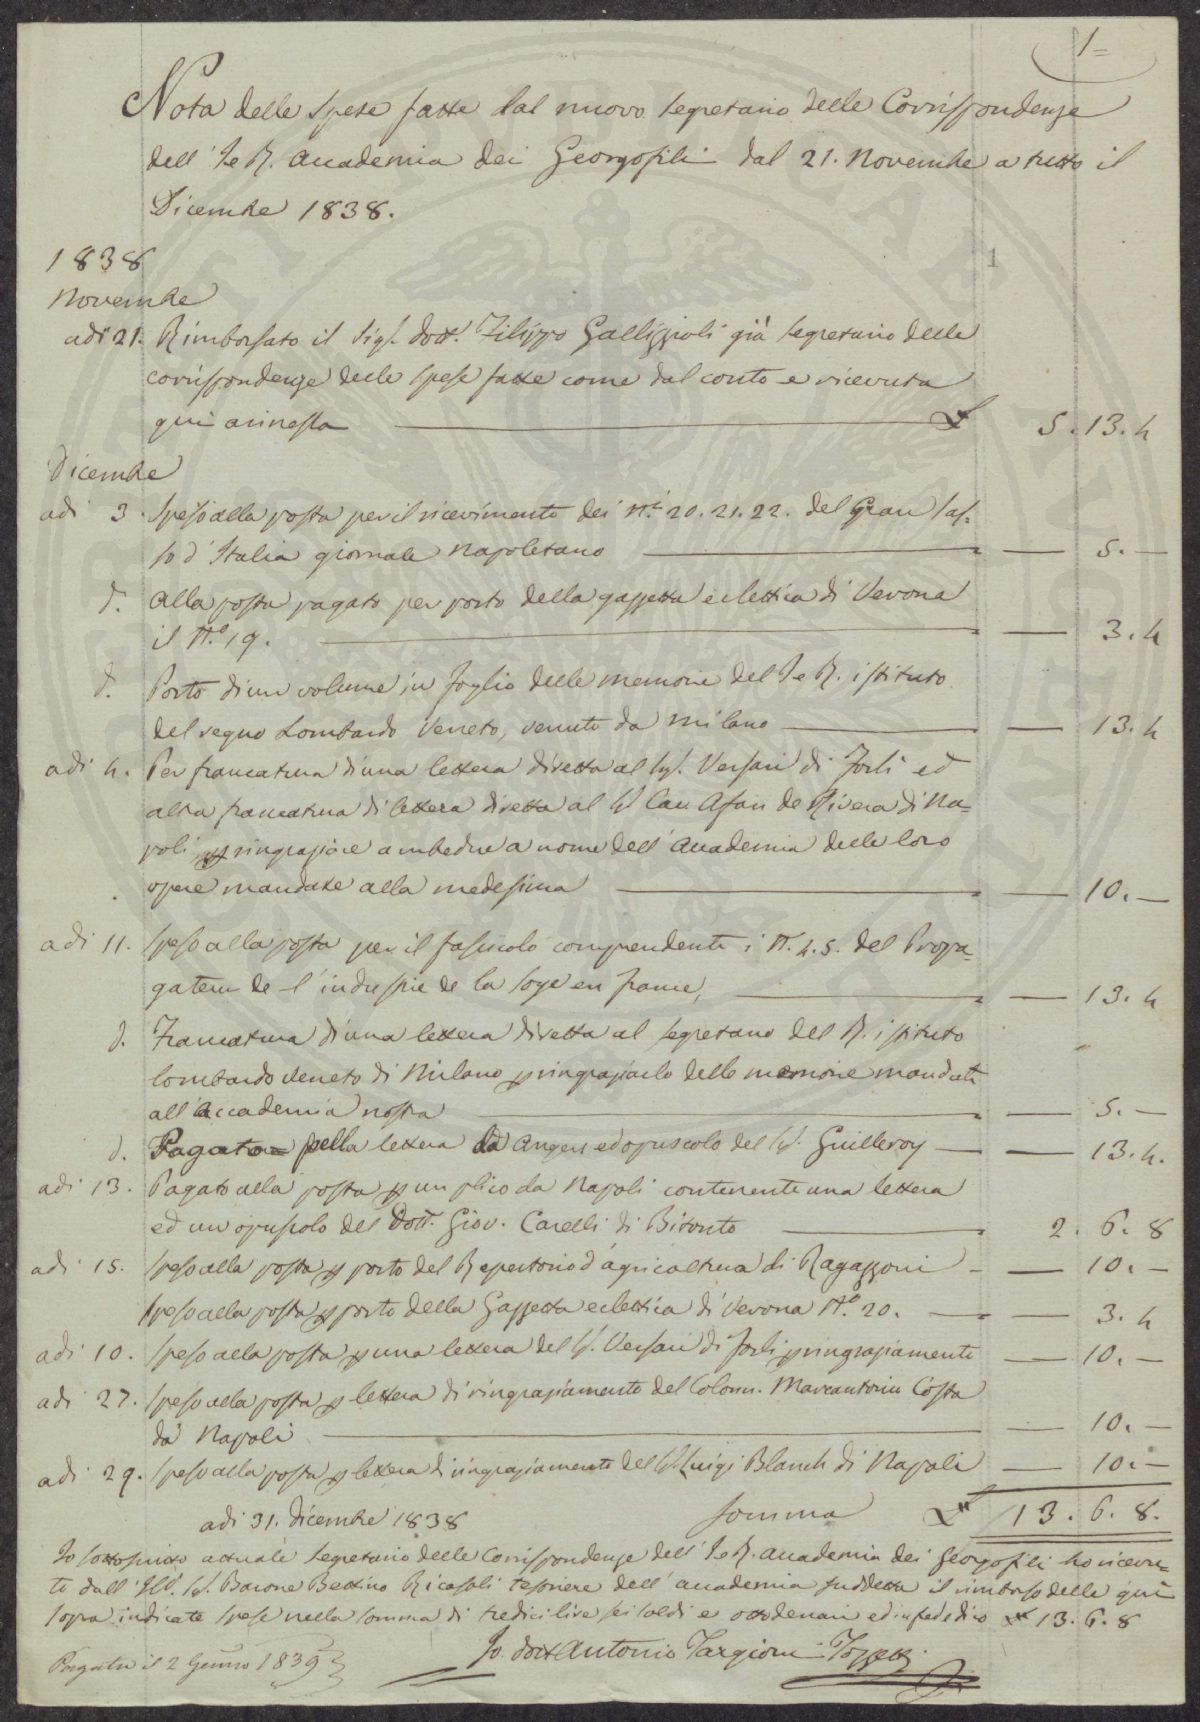 1=
Nota delle spese fatte dal nuovo segretario delle Corrispondenze
dell' I e R. Accademia dei Georgofili dal 21. Novembre a tutto il
Dicembre 1838.
1
1838
Novembre
adì 21. Rimborsato il Sigr. dott. Filippo Gallizzioli già segretario delle
corrispondenze delle spese fatte come dal conto e ricevuta
qui annessa £ 5. 13. 4
Dicembre
adì 3 Speso alla posta per il ricevimento dei Ni. 20. 21. 22. del Gran Sas-
so d'Italia giornale Napoletano — 5. —
d. Alla posta pagato per porto della gazzetta eclettica di Verona
il No. 19. — 3. 4
d. Porto di un volume in foglio delle memorie del I e R. istituto
del regno Lombardo Veneto, venuto da Milano — 13. 4
adì 4. Per francatura d'una lettera diretta al Sigr. Versari di Forlì ed
altra francatura di lettera diretta al Sr Cav Afan de Rivera di Na-
poli p ringraziare ambedue a nome dell' Accademia delle loro
opere mandate alla medesima — 10. —
adì 11. Speso alla posta per il fascicolo comprendente i N. 4. 5. del Propa-
gateur de l'industrie de la soye en france, — 13. 4
d. Francatura d'una lettera diretta al segretario del R. istituto
lombardo Veneto di Milano p ringraziarlo delle memorie mandate
all'Accademia nostra — 5. —
d. Pagato pella lettera da Angers ed opuscolo del Sr. Guilleroy — 13. 4.
adì 13. Pagato alla posta p un plico da Napoli contenente una lettera
ed un opuscolo del Dott. Giov. Carelli di Bitonto 2. 6. 8
adì 15. Speso alla posta p porto del Repertorio d'agricoltura di Ragazzoni — 10. —
Speso alla posta p porto della Gazzetta eclettica di Verona No. 20. — 3. 4
adì 10. Speso alla posta p una lettera del Sr. Versari di Forlì p ringraziamento — 10. —
adì 27. Speso alla posta p lettera di ringraziamento del Colonn. Marcantonio Costa
da Napoli — 10. —
adì 29. Speso alla posta p lettera di ringraziamento del Sr Luigi Blanch di Napoli — 10. —
adì 31. Dicembre 1838 Somma £ 13. 6. 8.
Io sottoscritto attuale segretario delle Corrispondenze dell' I e R. Accademia dei Georgofili ho ricevu-
to dall' Ill. Sr. Barone Bettino Ricasoli tesoriere dell' accademia suddetta il rimborso delle quì
sopra indicate spese nella somma di tredici lire sei soldi e otto denari ed in fede dico £ 13. 6. 8
Io. dott Antonio Targioni Tozzetti
Pagata il 2 Genno 1839